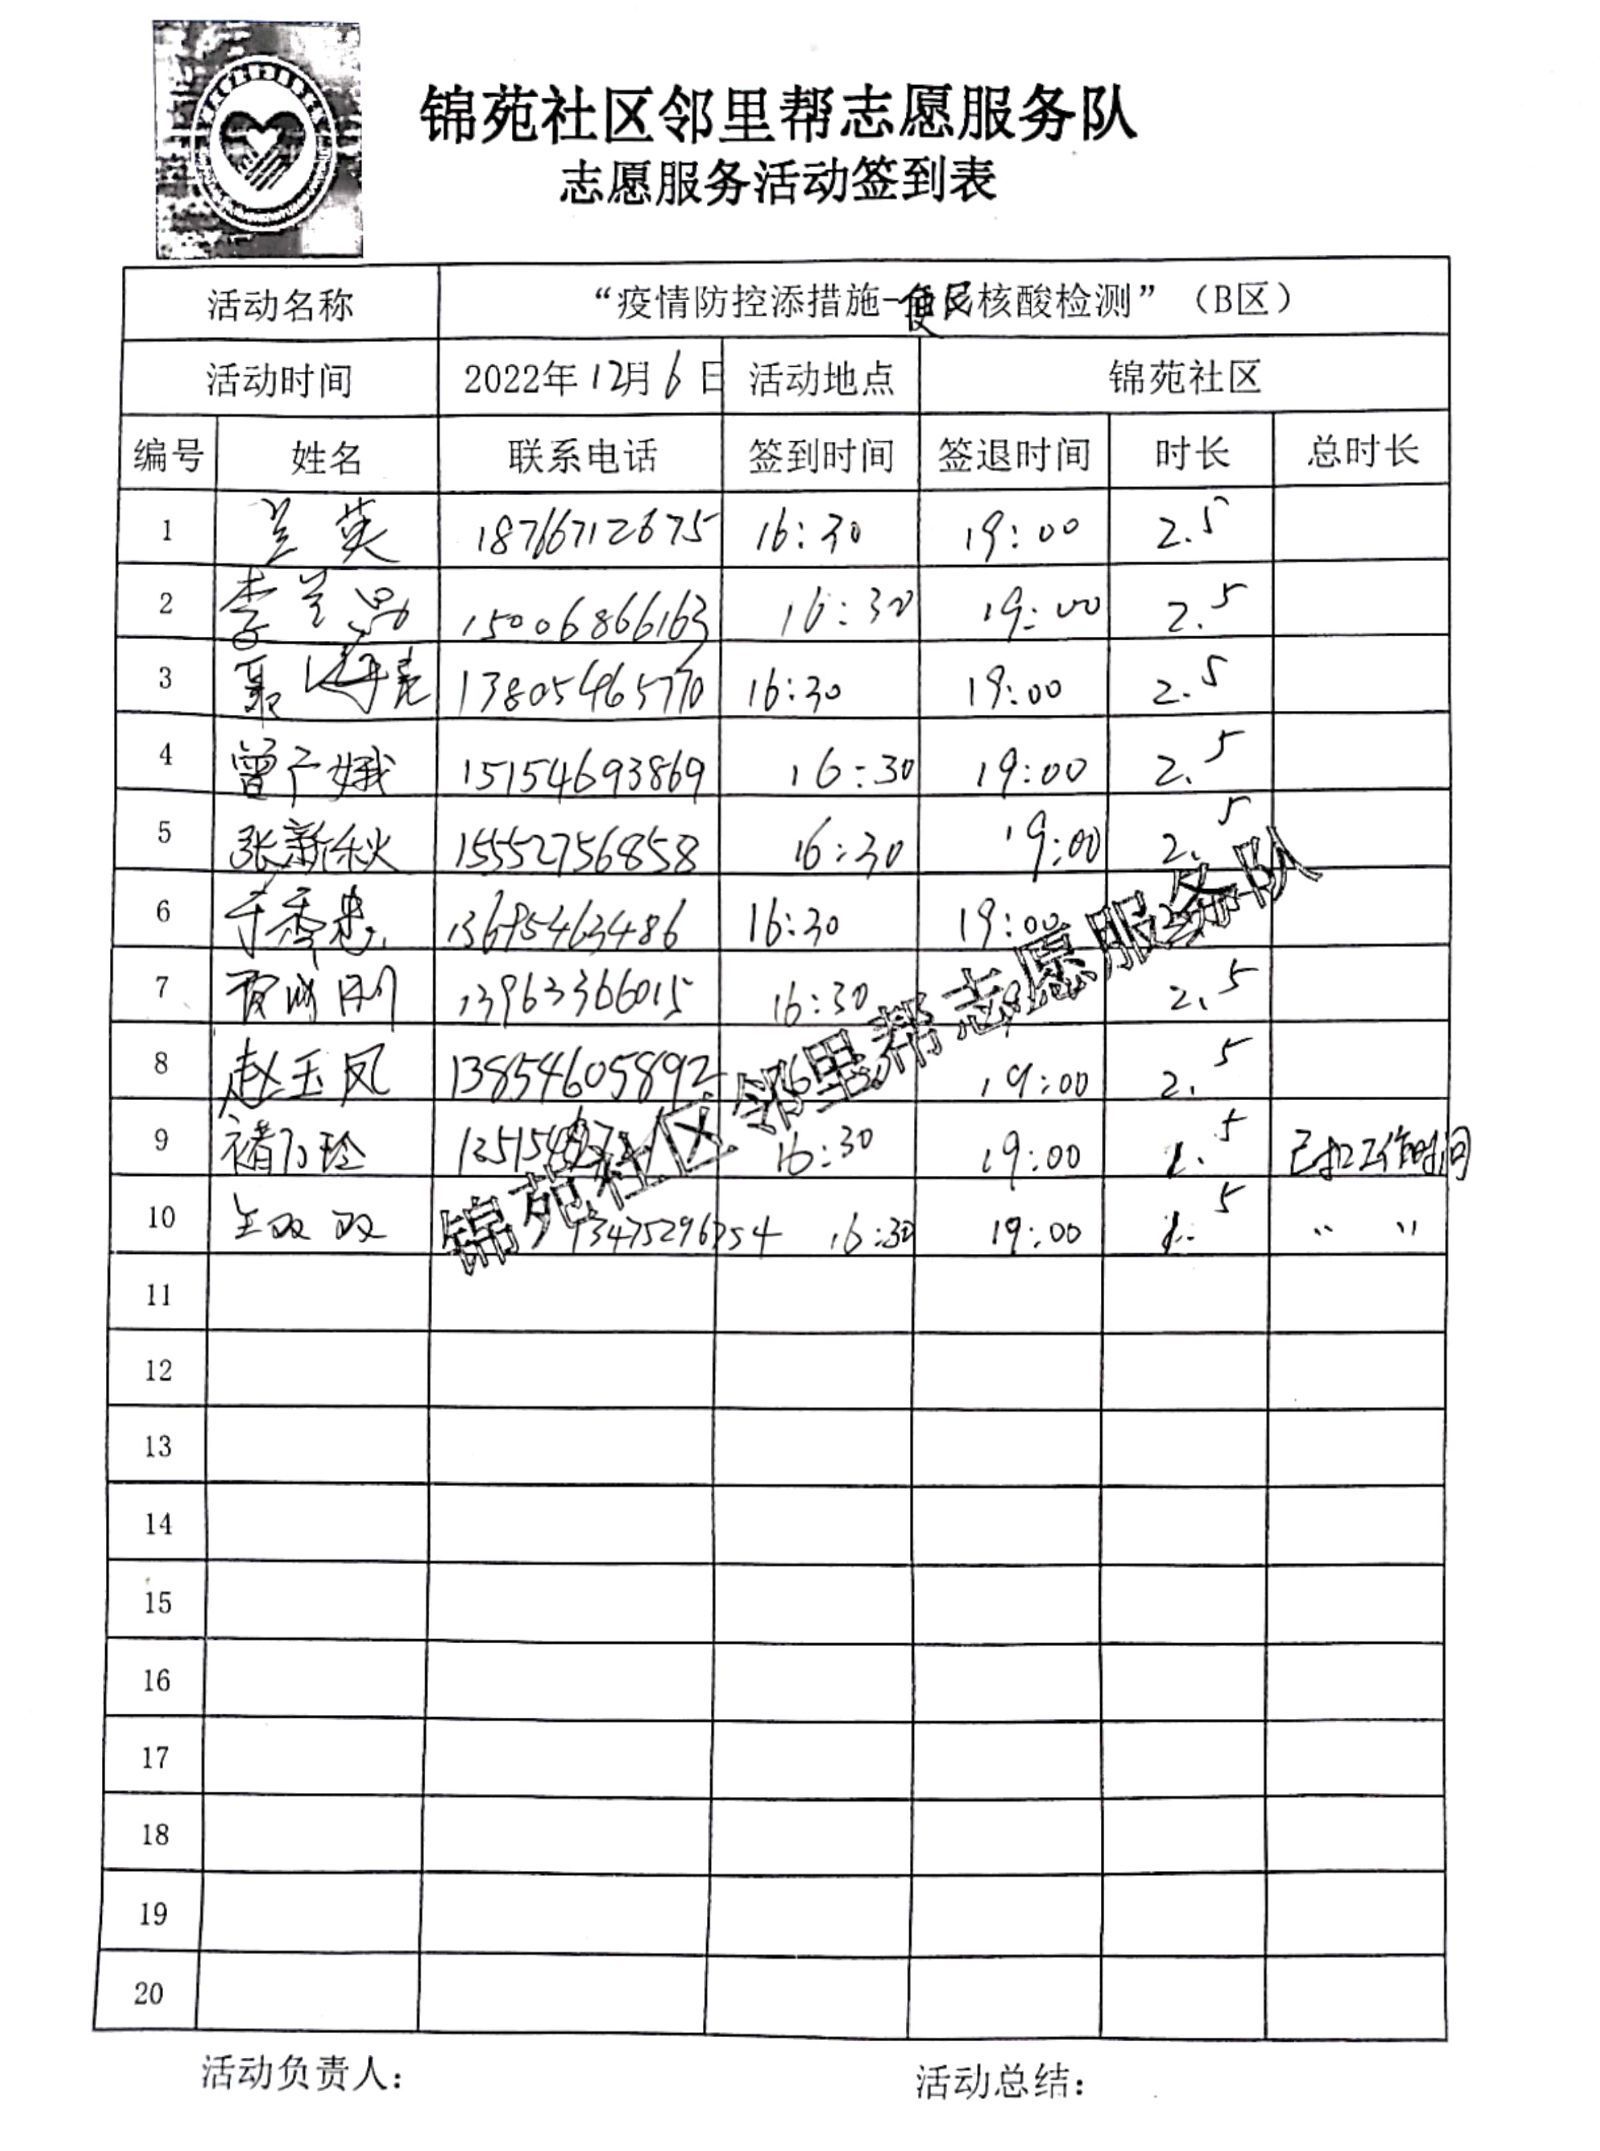 锦苑社区邻里帮志愿服务队
志愿服务活动签到表
活动名称 “疫情防控添措施-便民核酸检测”（B区）
活动时间 2022年12月6日 活动地点 锦苑社区
编号 姓名 联系电话 签到时间 签退时间 时长 总时长
1 兰英 18766712675 16:30 19:00 2.5
2 李兰 15006866163 16:30 19:00 2.5
3 聂 13805465770 16:30 19:00 2.5
4 曾广娥 15154693869 16:30 19:00 2.5
5 张新秋 15552756858 16:30 19:00 2.5
6 于秀忠 13695463486 16:30 19:00
7 贾 刚 13963366015 16:30 2.5
8 赵玉凤 13854605892 19:00 2.5
9 褚 玲 16:30 19:00 1.5 已扣工作时间
10 王双双 16:30 19:00 1.5 〃 〃
11
12
13
14
15
16
17
18
19
20
锦苑社区邻里帮志愿服务队
活动负责人： 活动总结：